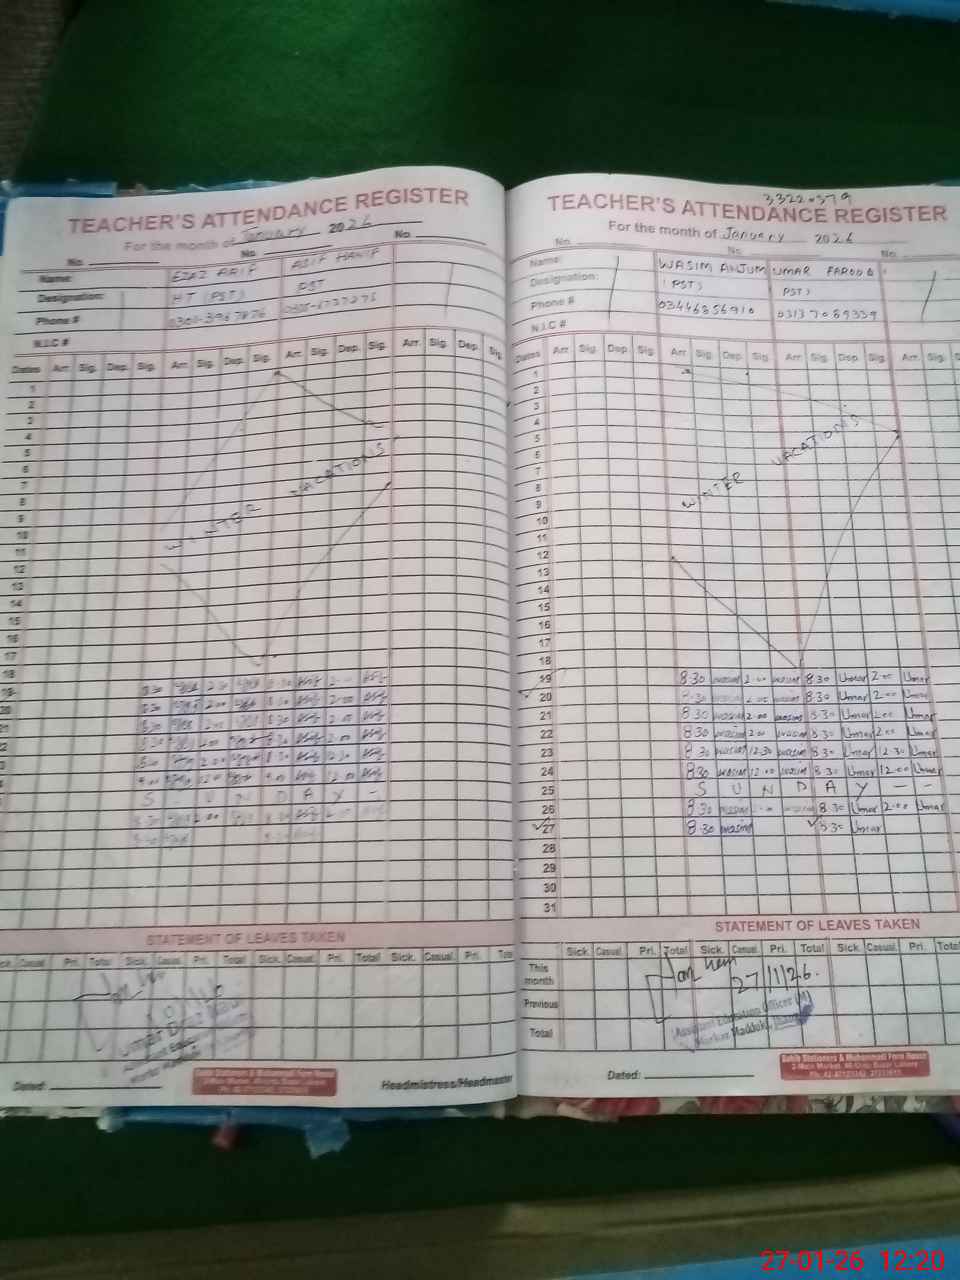 TEACHER'S ATTENDANCE REGISTER
For the month of January 2026
No. No. No.
Name: EJAZ ARIF ASIF HANIF
Designation: HT (PST) PST
Phone #
N.I.C #
Dates Arr. Sig. Dep. Sig. Arr. Sig. Dep. Sig. Arr. Sig. Dep. Sig. Arr. Sig. Dep. Sig.
1
2
3
4
5
6
7
8
9
10
11
12
13
14
15
16
17
18
WINTER VACATIONS
19 8.30 2.00 8.30 2.00
20 8.30 2.00 8.30 2.00
21 8.30 2.00 8.30 2.00
8.30 2.00 8.30 2.00
8.30 8.30 12.30
12.00 12.00
S U N D A Y -
8.30 2.00 8.30 2.00
8.30
STATEMENT OF LEAVES TAKEN
Sick. Casual Pri. Total Sick. Casual. Pri. Total Sick. Casual. Pri. Total Sick. Casual. Pri.
Dated:
Headmistress/Headmaster
33220379
TEACHER'S ATTENDANCE REGISTER
For the month of January 2026
No. No. No.
Name: WASIM ANJUM UMAR FAROOQ
Designation: (PST) (PST)
Phone # 03446856910 03137089339
N.I.C #
Dates Arr. Sig. Dep. Sig. Arr. Sig. Dep. Sig. Arr. Sig. Dep. Sig. Arr. Sig.
1
2
3
4
5
6
7
8
9
10
11
12
13
14
15
16
17
18
WINTER VACATIONS
19 8.30 wasim 2.00 wasim 8.30 Umar 2.00 Umar
20 8.30 wasim 2.00 wasim 8.30 Umar 2.00 Umar
21 8.30 wasim 2.00 wasim 8.30 Umar 2.00 Umar
22 8.30 wasim 2.00 wasim 8.30 Umar 2.00 Umar
23 8.30 wasim 12.30 wasim 8.30 Umar 12.30 Umar
24 8.30 wasim 12.00 wasim 8.30 Umar 12.00 Umar
25 S U N D A Y - -
26 8.30 wasim wasim 8.30 Umar 2.00 Umar
27 8.30 wasim 8.30 Umar
28
29
30
31
STATEMENT OF LEAVES TAKEN
Sick. Casual Pri. Total Sick. Casual. Pri. Total Sick. Casual. Pri. Total
This month
27/1/26.
Previous
Assistant Education Officer (M)
Total
Dated:
Sahib Stationers & Muhammadi Form House
27-01-26 12:20